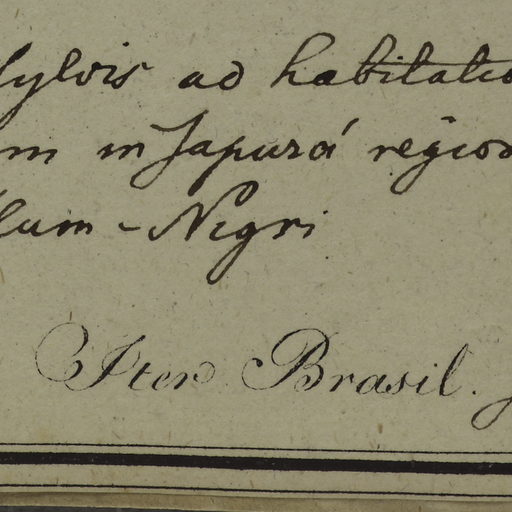 sylvis ad habitatio
m in Japurá region
lum - Nigri
Iter Brasil.